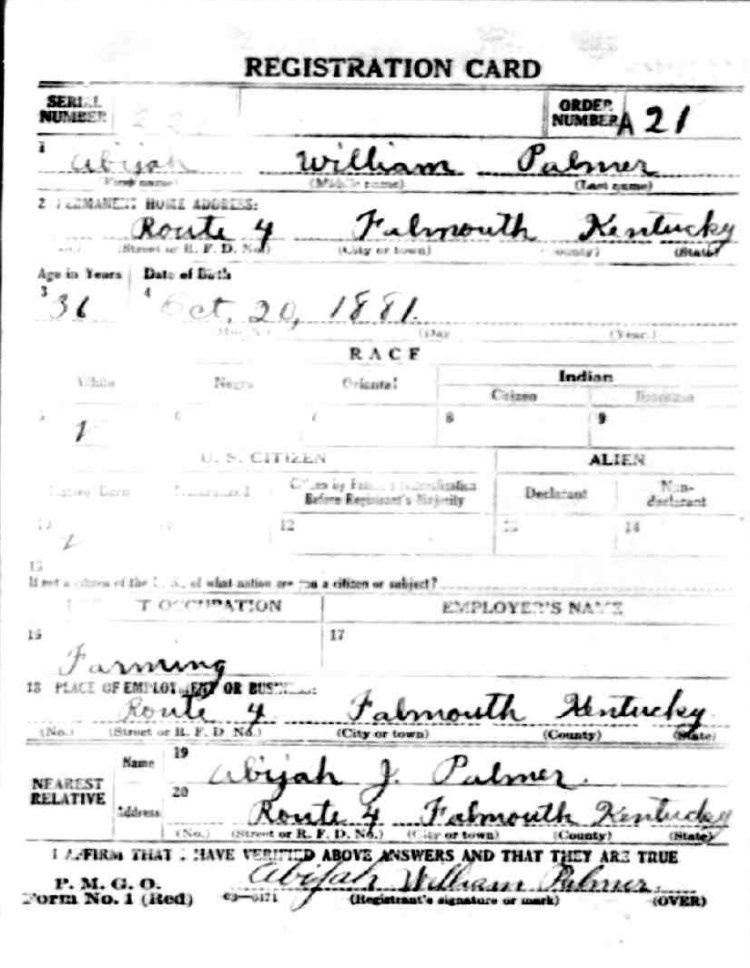 REGISTRATION CARD
SERIAL NUMBER ORDER NUMBER A 21
1 Abijah William Palmer
(First name) (Middle name) (Last name)
2 PERMANENT HOME ADDRESS:
Route 4 Falmouth Kentucky
(No.) (Street or R. F. D. No.) (City or town) (County) (State)
Age in Years Date of Birth
3 36 4 Oct. 20, 1881.
(Month.) (Day (Year.)
RACE
White Negro Oriental Indian
Citizen
5 6 7 8 9
U. S. CITIZEN ALIEN
Native Born Naturalized Citizen by Father's Naturalization Before Registrant's Majority Declarant Non-declarant
10 11 12 13 14
15
If not a citizen of the U. S., of what nation are you a citizen or subject?
PRESENT OCCUPATION EMPLOYER'S NAME
16 Farming 17
18 PLACE OF EMPLOYMENT OR BUSINESS:
Route 4 Falmouth Kentucky
(No.) (Street or R. F. D. No.) (City or town) (County) (State)
NEAREST RELATIVE Name 19 Abijah J. Palmer.
Address 20 Route 4 Falmouth Kentucky
(No.) (Street or R. F. D. No.) (City or town) (County) (State)
I AFFIRM THAT I HAVE VERIFIED ABOVE ANSWERS AND THAT THEY ARE TRUE
P. M. G. O. Abijah William Palmer.
Form No. 1 (Red) 03—6171 (Registrant's signature or mark) (OVER)